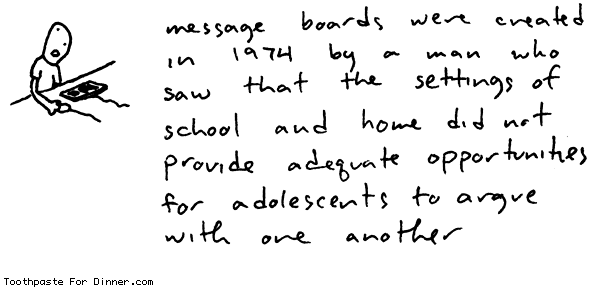 message boards were created
in 1974 by a man who
saw that the settings of
school and home did not
provide adequate opportunities
for adolescents to argue
with one another
Toothpaste For Dinner.com